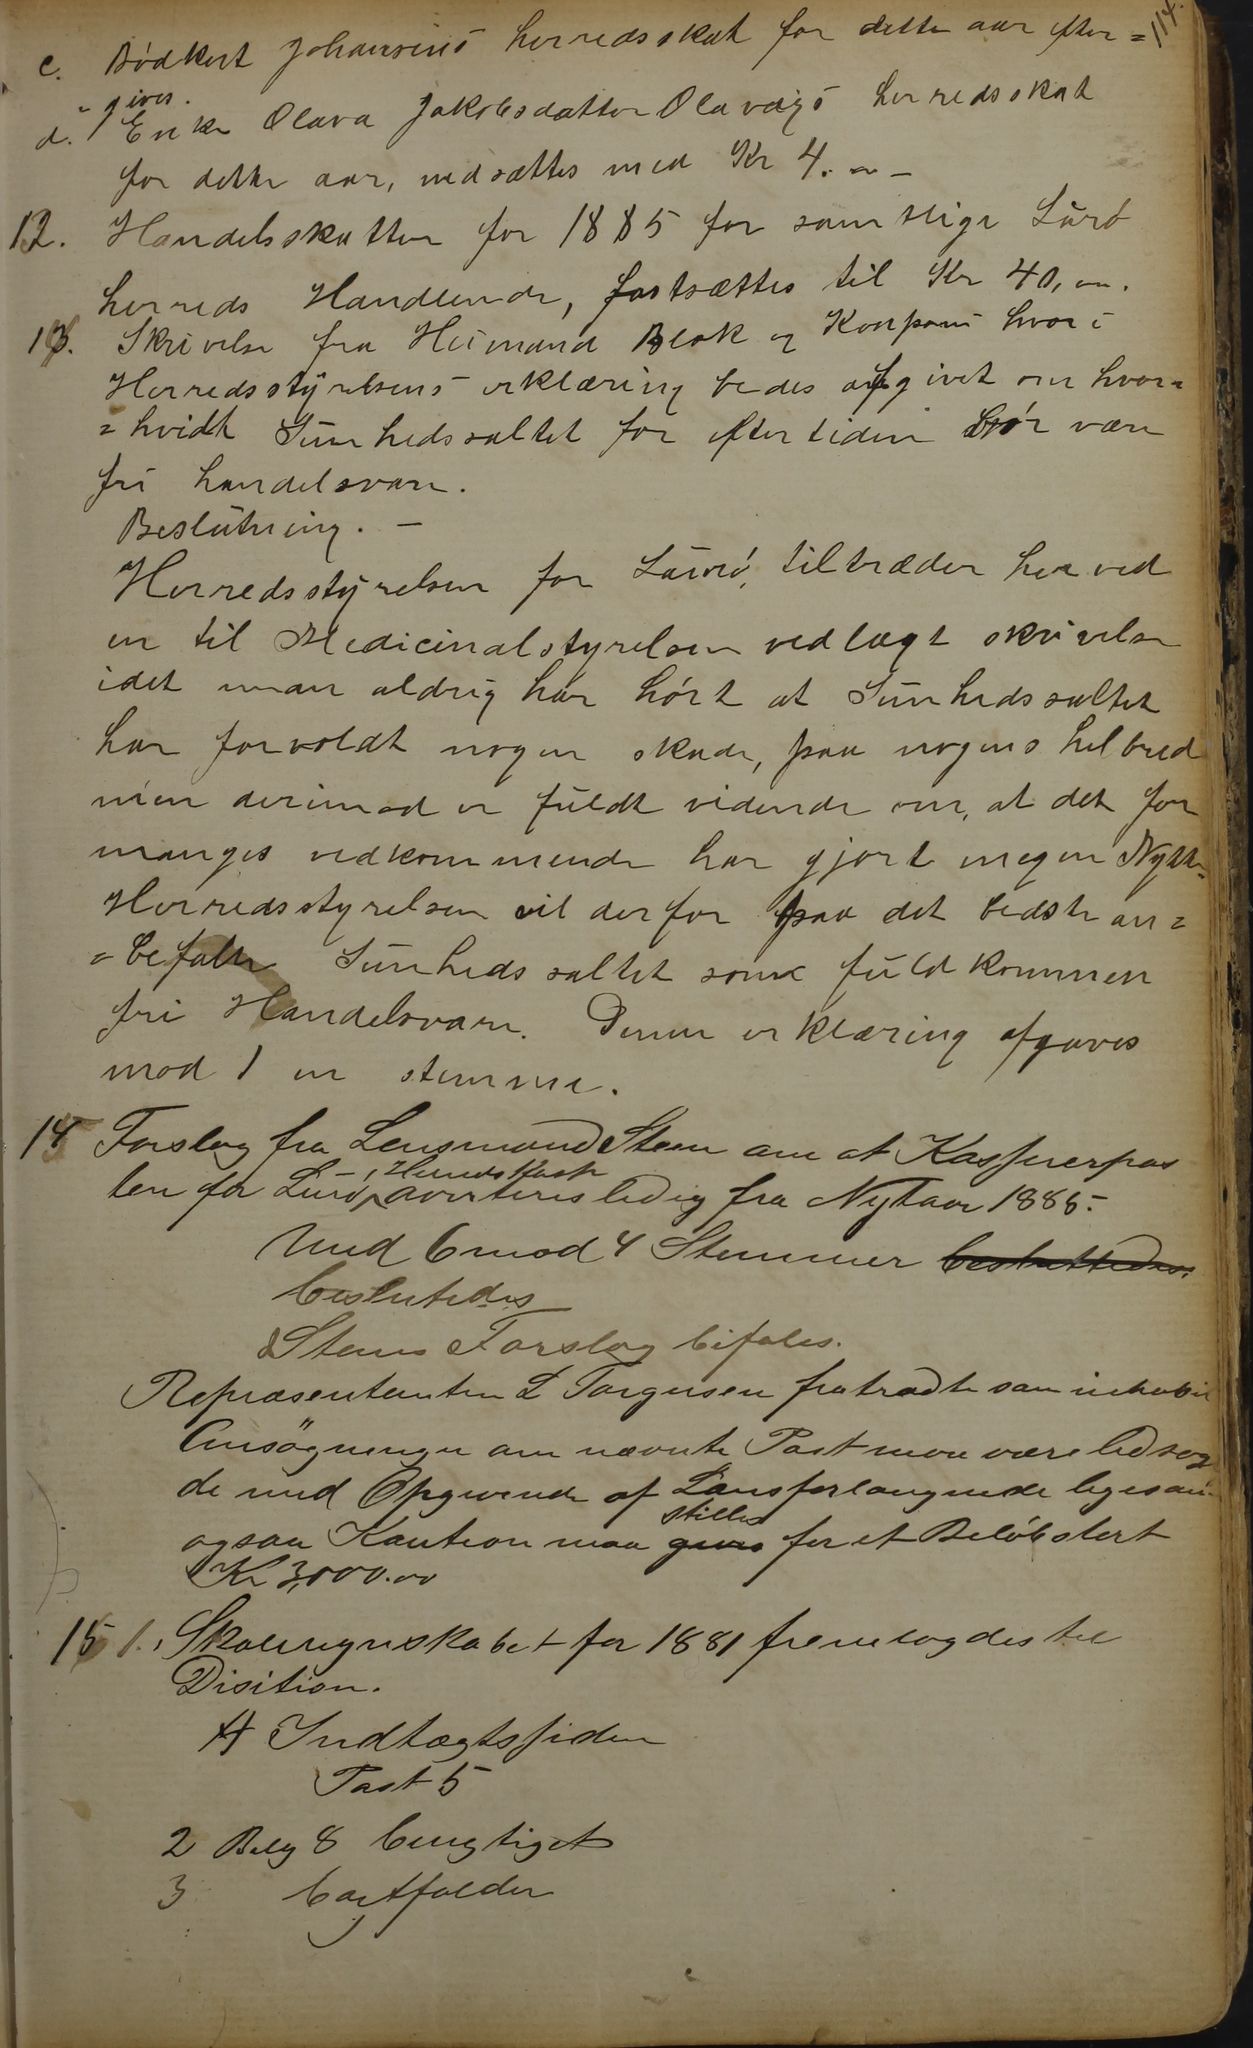 114.
c. Bödkert Johansens herredsskat for dette aar efter=
=gives.
d. Enke Olava Jakobsdatter Olavdys herredsskat
for dette aar, nedsættes med Kr 4. " -
12. Handelsskatten for 1885 for samtlige Lurö
herreds Handlende, fastsættes til Kr 40, ".
13. Skrivelse fra Heimand Blok og Konpani hvori
Herredsstyrelsens erklæring bedes afgivet om hvor=
=hvidt Sunhedssaltet for eftertiden bör være
fri handelsvare.
Beslutning. -
Herredsstyrelsen for Lurö, tiltræder herved
en til Medicinalstyrelsen vedlagt skrivelse
idet man aldrig har hört at Sunhedssaltet
har forvoldt nogen skade, paa nogens helbred
men derimod er fuldt vidende om, at det for
manges vedkommende har gjort megen Nytte=
Herredsstyrelsen vil derfor paa det bedste an=
=befalle Sunhedssaltet som fuldkommen
fri Handelsvare. Denne erklæring afgaves
mod 1 en stemme.
14 Forslag fra Lensmand Steen om at Kasserer pos
ten for Lurö Herredskasse averteres ledig fra Nytaar 1885.
Med 6 mod 4 Stemmer besluttedes
beslutedes
Steens Forslag bifales.
Repræsentanten L Torgersen fratradte som inhabil
Ansögninger om nævnte Post maa være ledsag
de med Opgivende af Lönsforlangende ligesom
ogsaa Kaution maa gives stilles for et Belöb stort
Kr 3,000.00
15 1., Skoleregnskabet for 1881 fremlagdes til
Disition.
A Indtægtssiden
Post 5
2 Belg 8 bengtiget
3 bortfalder